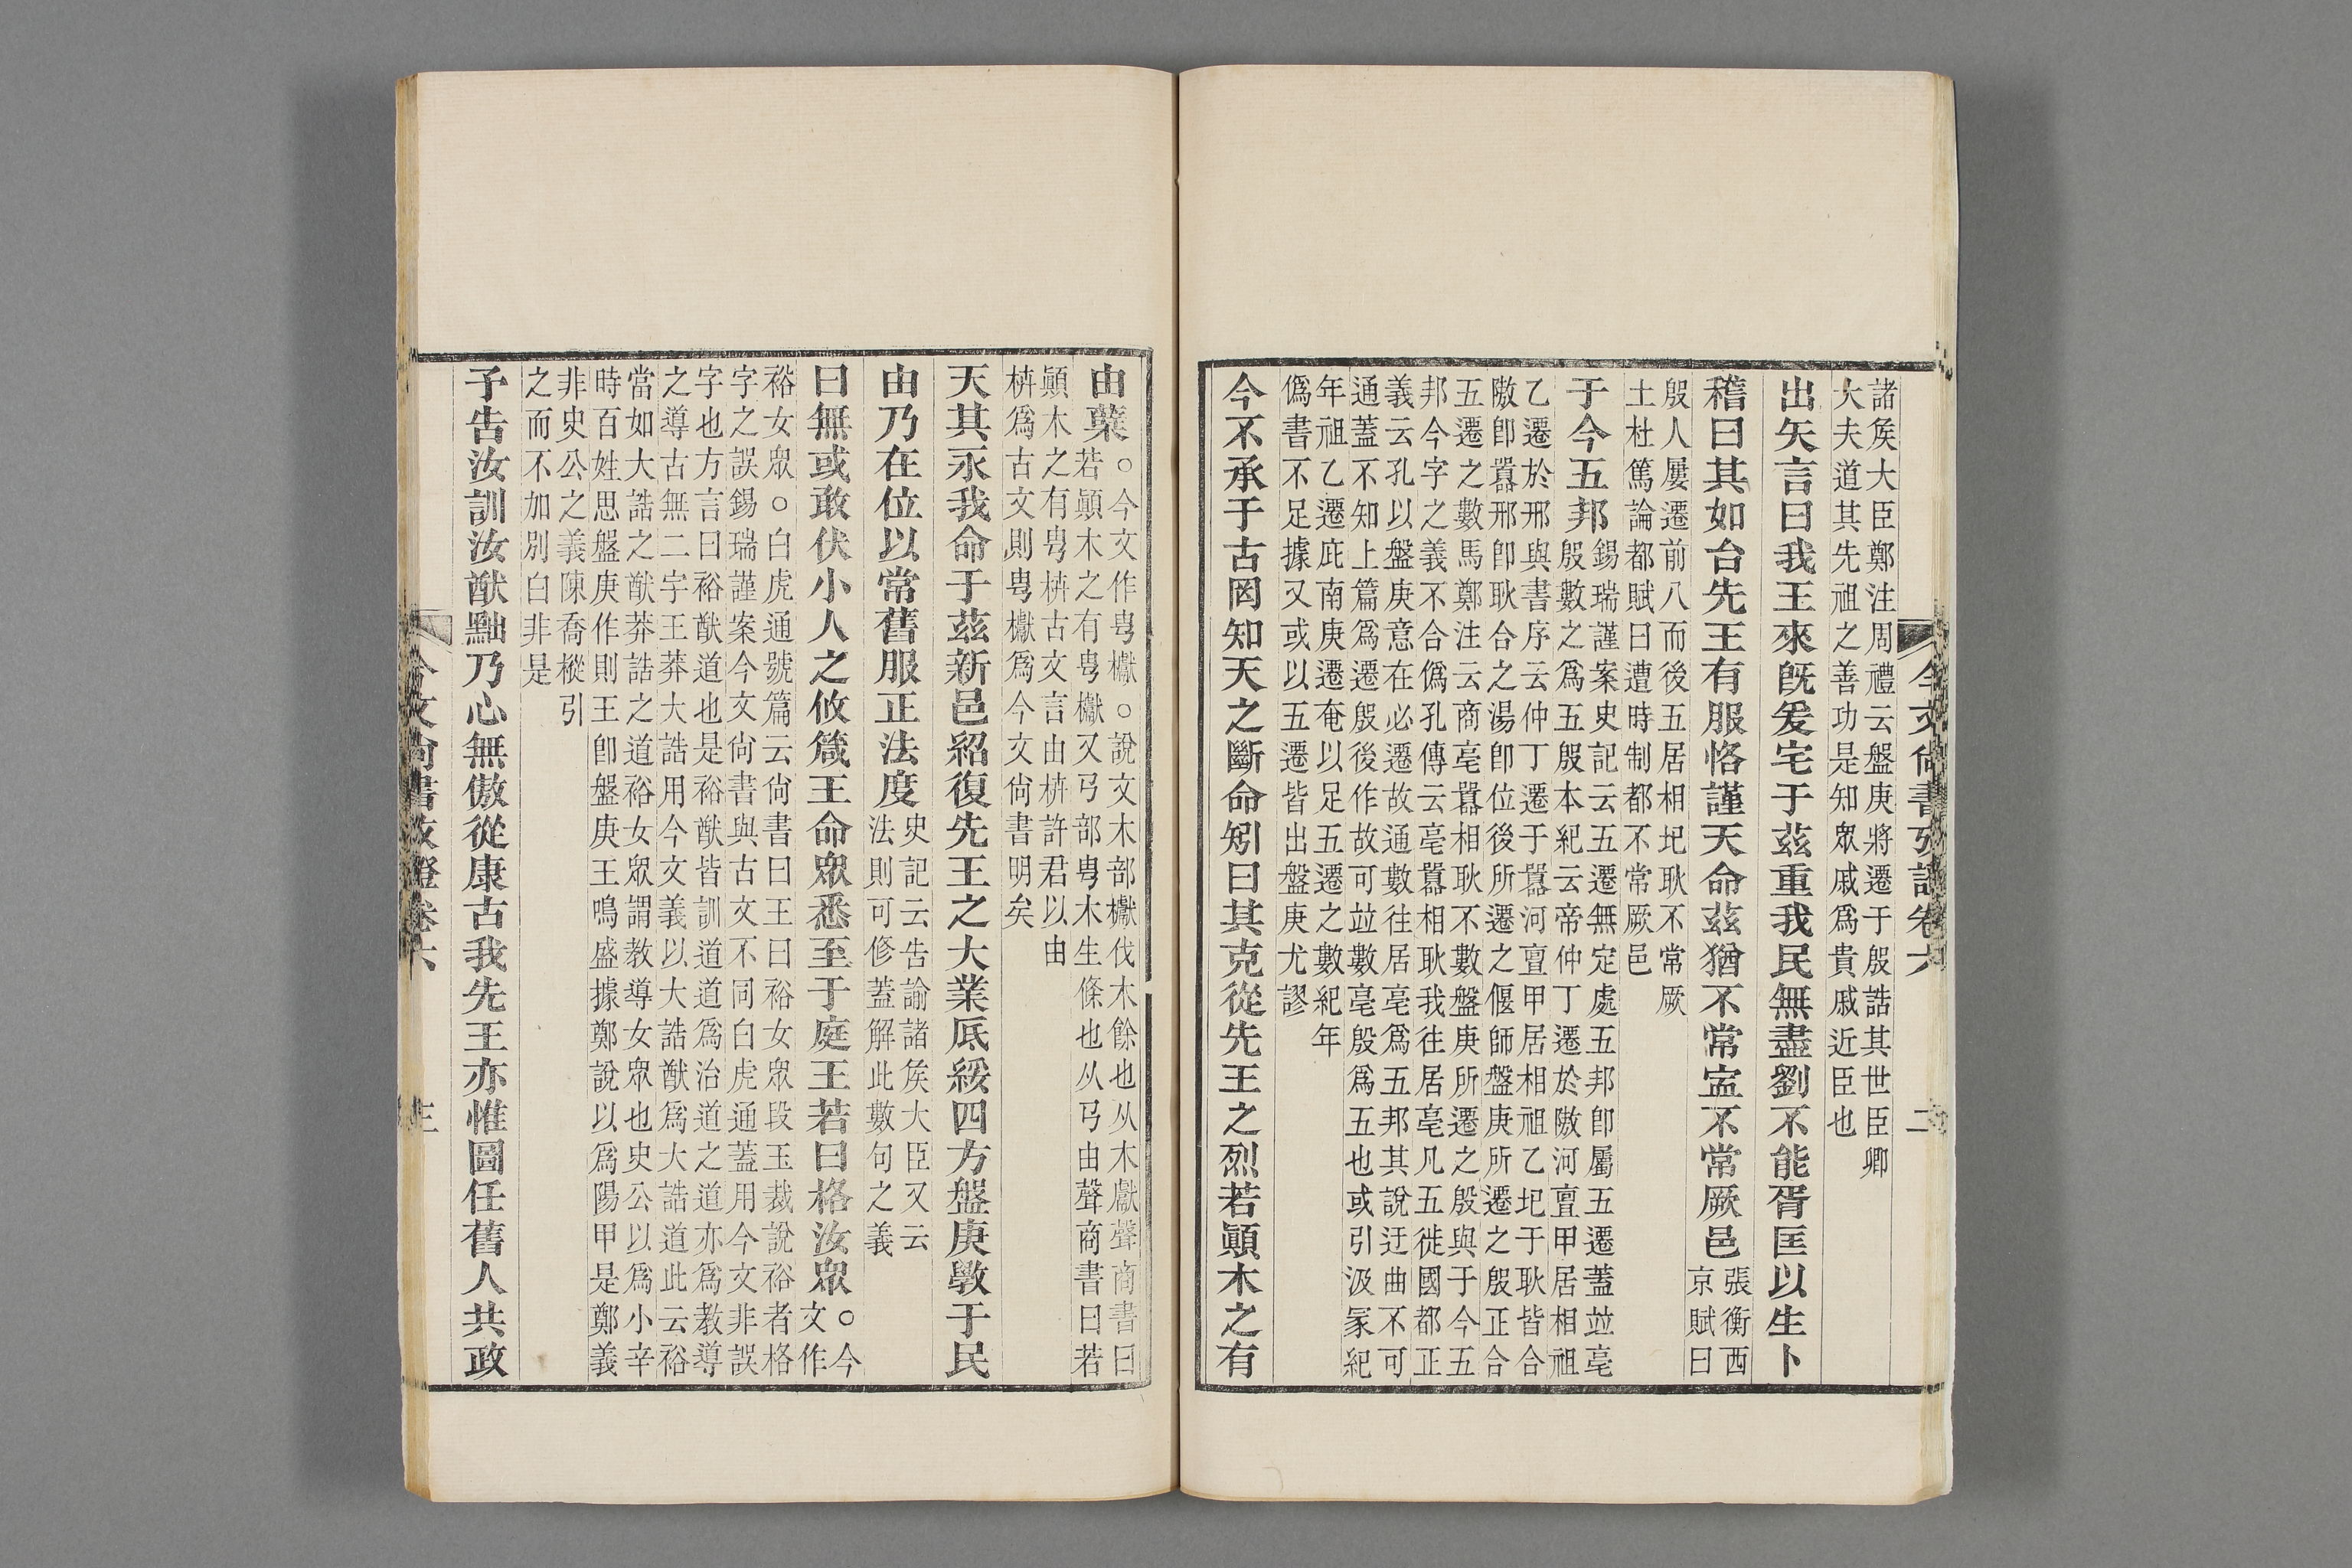 今文尚書攷證卷六
諸矦大臣鄭注周禮云盤庚將遷于殷誥其世臣卿
大夫道其先祖之善功是知眾戚爲貴戚近臣也
出矢言曰我王來旣爰宅于茲重我民無盡劉不能胥匡以生卜
稽曰其如台先王有服恪謹天命茲猶不常寍不常厥邑張衡西
京賦曰
殷人屢遷前八而後五居相圯耿不常厥
土杜篤論都賦曰遭時制都不常厥邑
于今五邦錫瑞謹案史記云五遷無定處五邦卽屬五遷蓋竝亳
殷數之爲五殷本紀云帝仲丁遷於隞河亶甲居相祖
乙遷於邢與書序云仲丁遷于囂河亶甲居相祖乙圯于耿皆合
隞卽囂邢卽耿合之湯卽位後所遷之偃師盤庚所遷之殷正合
五遷之數馬鄭注云商亳囂相耿不數盤庚所遷之殷與于今五
邦今字之義不合僞孔傳云亳囂相耿我往居亳凡五徙國都正
義云孔以盤庚意在必遷故通數往居亳爲五邦其說迂曲不可
通蓋不知上篇爲遷殷後作故可竝數亳殷爲五也或引汲冢紀
年祖乙遷庇南庚遷奄以足五遷之數紀年
僞書不足據又或以五遷皆出盤庚尤謬
今不承于古罔知天之斷命矧曰其克從先王之烈若顚木之有
由蘖○今文作㽕櫱○說文木部櫱伐木餘也从木獻聲商書曰
若顚木之有㽕櫱又弓部㽕木生條也从弓由聲商書曰若
顚木之有㽕枿古文言由枿許君以由
枿爲古文則㽕櫱爲今文尚書明矣
天其永我命于茲新邑紹復先王之大業厎綏四方盤庚斆于民
由乃在位以常舊服正法度史記云告諭諸矦大臣又云
法則可修蓋解此數句之義
曰無或敢伏小人之攸箴王命眾悉至于庭王若曰格汝眾○今
文作
裕女眾○白虎通號篇云尙書曰王曰裕女眾段玉裁說裕者格
字之誤錫瑞謹案今文尙書與古文不同白虎通蓋用今文非誤
字也方言曰裕猷道也是裕猷皆訓道道爲治道之道亦爲教導
之導古無二字王莽大誥用今文義以大誥猷爲大誥道此云裕
當如大誥之猷莽誥之道裕女眾謂教導女眾也史公以爲小辛
時百姓思盤庚作則王卽盤庚王鳴盛據鄭說以爲陽甲是鄭義
非史公之義陳喬樅引
之而不加別白非是
予告汝訓汝猷黜乃心無傲從康古我先王亦惟圖任舊人共政